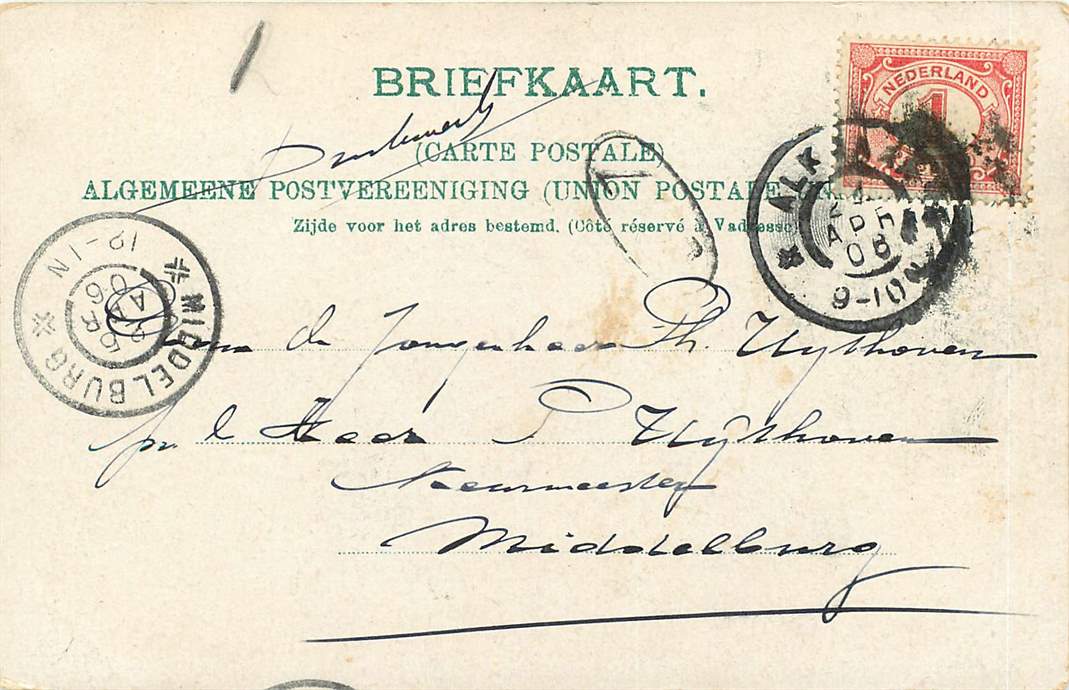 BRIEFKAART.
Drukwerk
(CARTE POSTALE)
ALGEMEENE POSTVEREENIGING (UNION POSTALE
Zijde voor het adres bestemd. (Côté réservé à l'adresse)
NEDERLAND
1
ALK
APR
06
9-10
MIDDELBURG
12-1N
APR
06
de Jongenheer Th. Uythoven
p/a d Heer P Uythoven
Middelburg